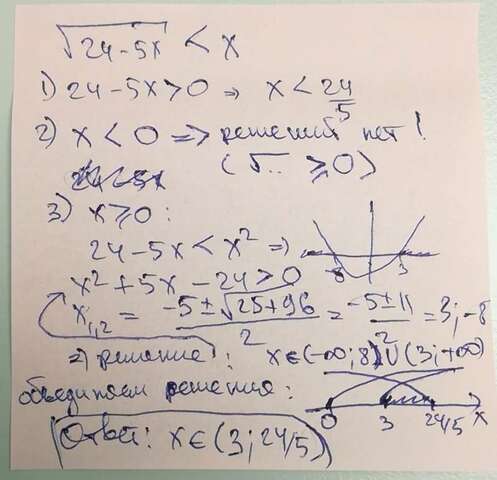 √24-5x < x
1) 24-5x>0 ⇒ x < 24/5
2) x < 0 ⇒ решений нет!
(√.. ≥0)
3) x≥0:
24-5x < x² ⇒
-8 3
x² + 5x - 24 > 0
x₁,₂ = -5±√25+96/2 = -5±11/2 = 3; -8
⇒ решение: x∈(-∞;8)∪(3;+∞)
объединяем решения:
0 3 24/5 x
Ответ: x∈(3; 24/5)